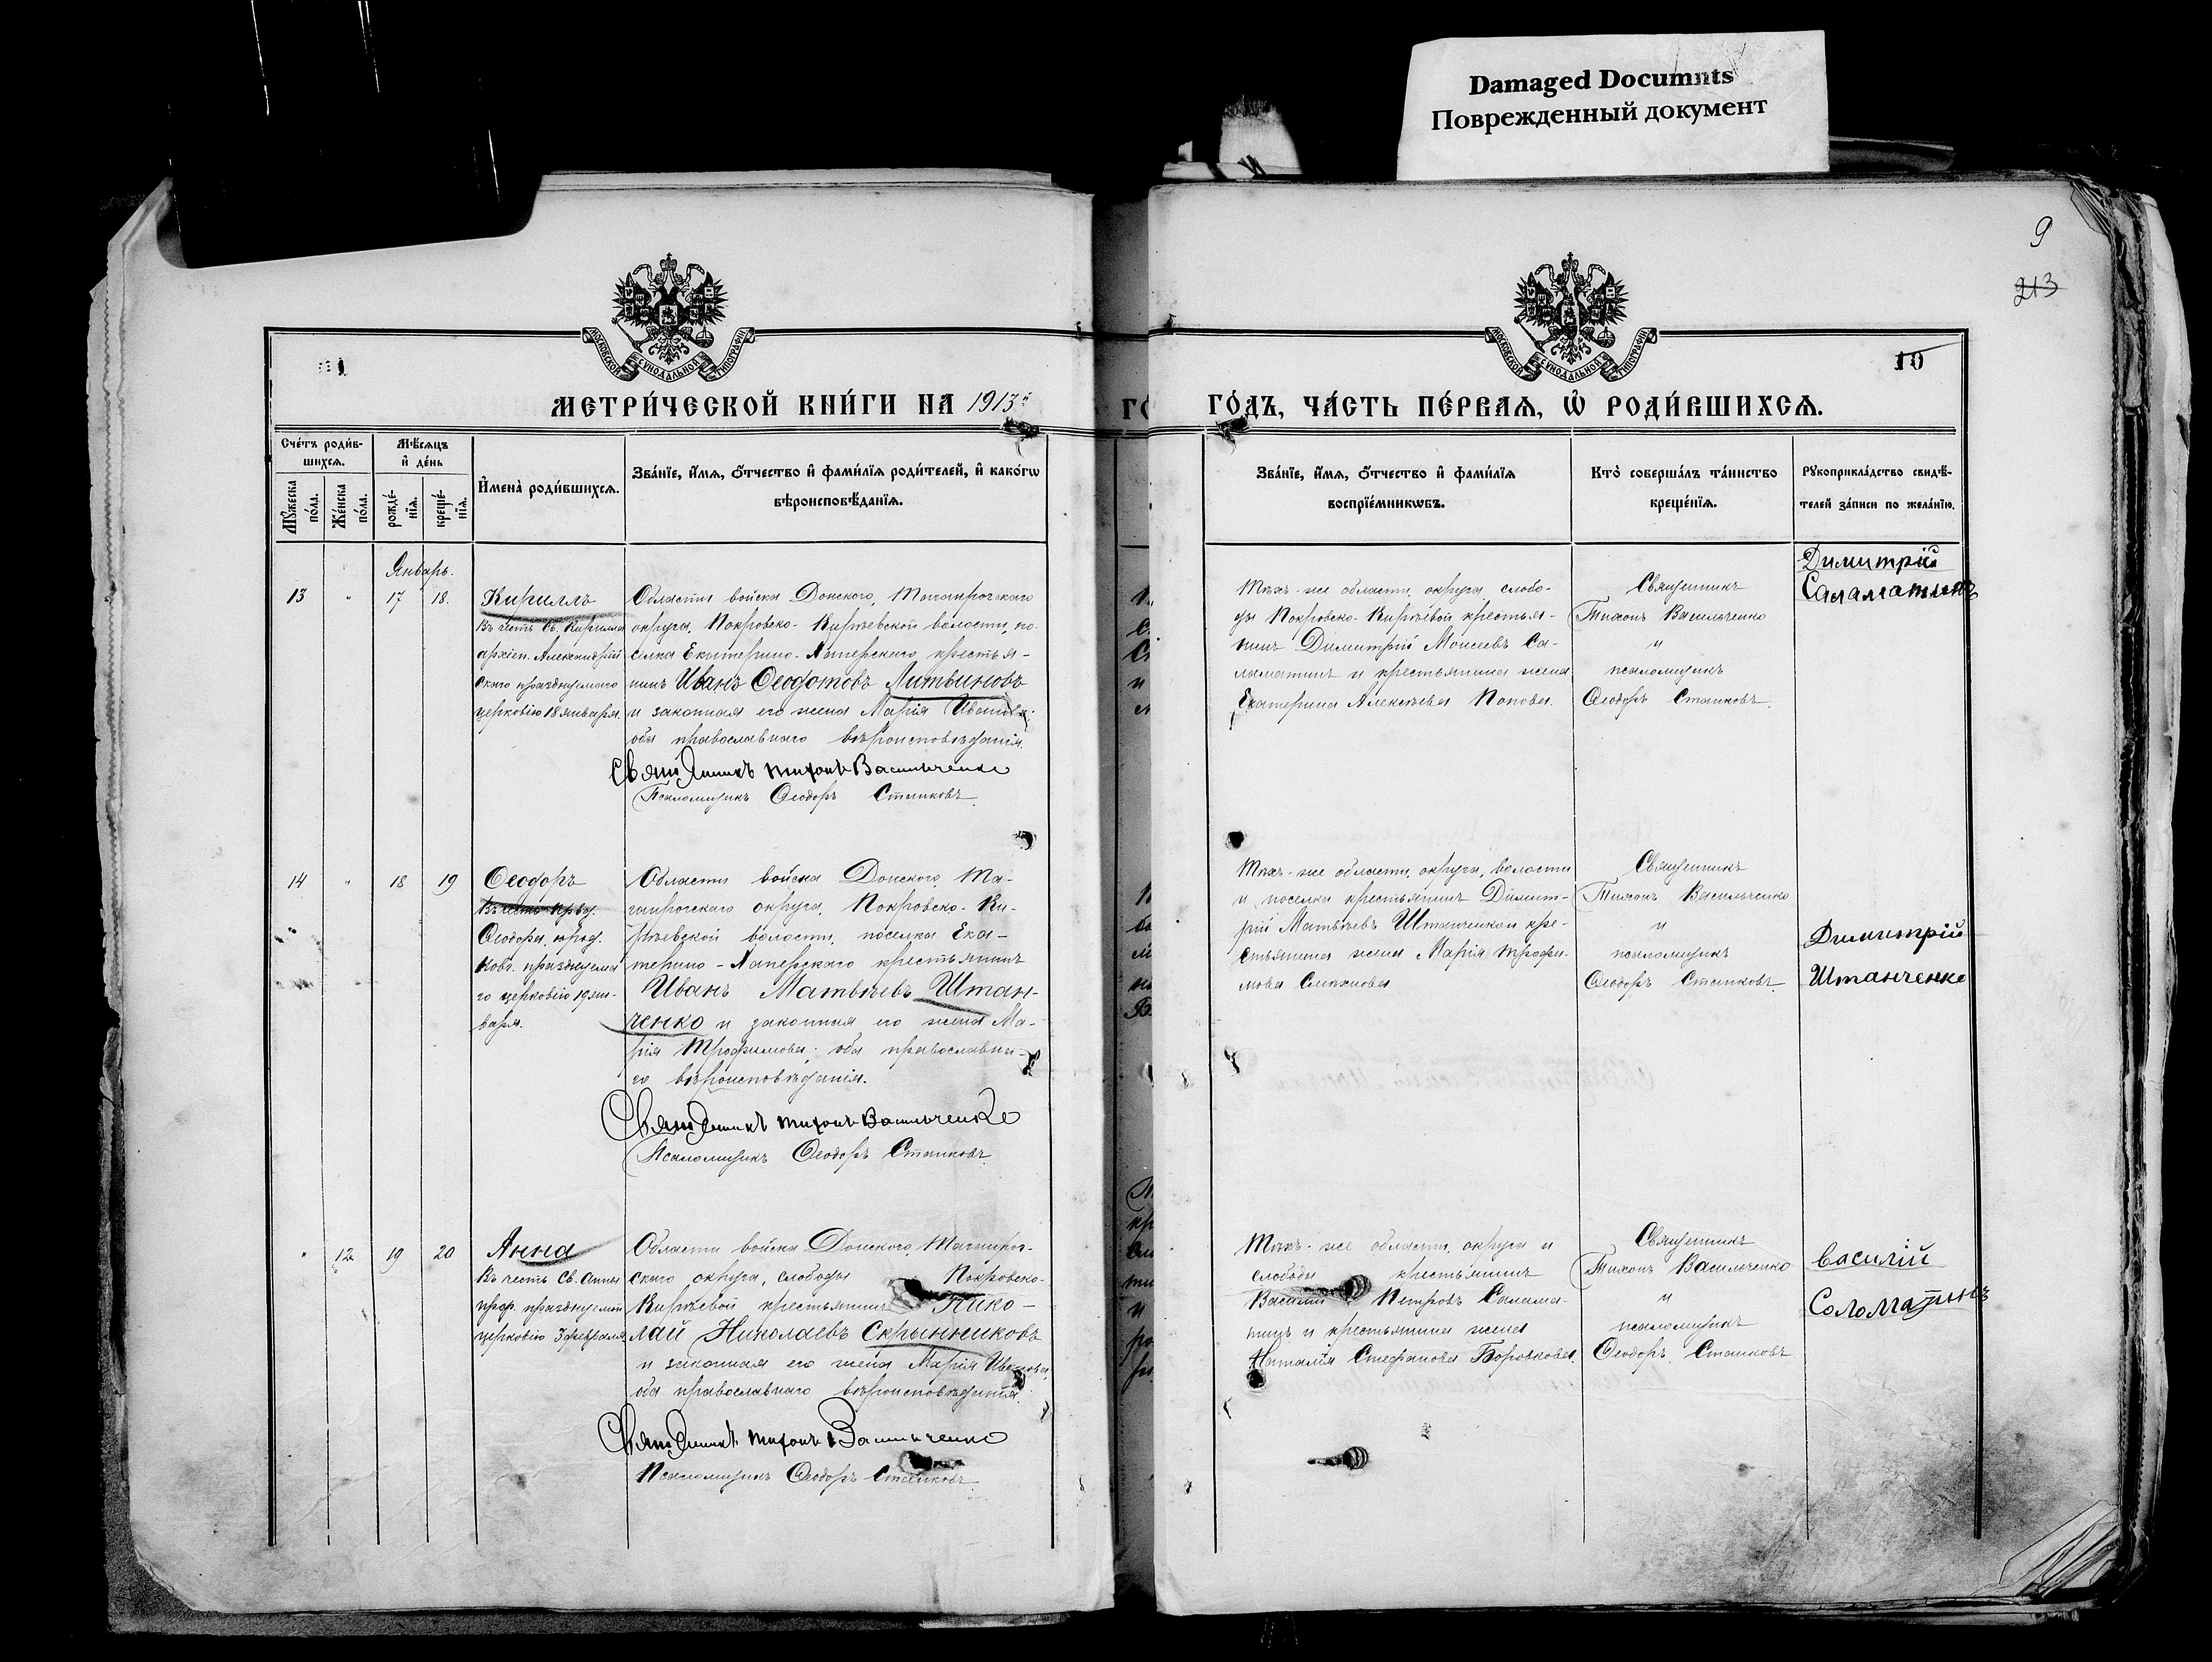 Damaged Documnts
Поврежденный документ
9
213
МОСКОВСКОЙ СѴНОДАЛЬНОЙ ТИПОГРАФІИ
МОСКОВСКОЙ СѴНОДАЛЬНОЙ ТИПОГРАФІИ
10
МЕТРИ́ЧЕСКОЙ КНИ́ГИ НА 1913й
ГО́ДЪ, ЧА́СТЬ ПЕ́РВАѦ, Ѡ҆ РОДИ́ВШИХСѦ.
Сче́тъ роди́в-
шихсѧ.
Мѣ́сѧцъ
и҆ де́нь
Мꙋ́жеска
по́ла.
Же́нска
по́ла.
рожде́-
нїѧ.
креще́-
нїѧ.
И҆мена̀ роди́вшихсѧ.
Зва́нїе, и҆́мѧ, ѻ҆́тчество и҆ фами́лїѧ роди́телей, и҆ како́гѡ
вѣроисповѣ́данїѧ.
Зва́нїе, и҆́мѧ, ѻ҆́тчество и҆ фами́лїѧ
воспрїе́мникѡвъ.
Кто̀ соверша́лъ та́инство
креще́нїѧ.
Рꙋкоприкла́дство свидѣ́-
телей за́писи по жела́нїю.
Январь.
13 " 17 18.
Кириллъ
Въ честь Св. Кирилла
архіеп. Александрій
скаго празднуемаго
церковію 18 января.
Области войска Донского, Таганрогскаго
округа, Покровско-Кирѣевской волости, по-
селка Екатерино-Хаперскаго крестья-
нинъ Иванъ Ѳеодотовъ Литвиновъ
и законная его жена Марія Иванова.
оба православнаго вѣроисповѣданія.
Священникъ Тихонъ Васильченко
Псаломщикъ Ѳеодоръ Станковъ.
Тѣхъ-же области, округа, слобо-
ды Покровско-Кирѣевой крестья-
нинъ Димитрій Моисеевъ Са-
ламатинъ и крестьянина жена
Екатерина Алексѣева Попова.
Священникъ
Тихонъ Васильченко
и
псаломщикъ
Ѳеодоръ Станковъ.
Димитрій
Саламатинъ
14 " 18 19
Ѳеодоръ
Въ честь
Ѳеодора, юрод.
Новг. празднуема
го церковію 19 ян-
варя.
Области войска Донского, Та-
ганрогскаго округа, Покровско-Ки-
рѣевской волости, поселка Ека-
терино-Хаперскаго крестьянинъ
Иванъ Матвѣевъ Штан-
ченко и законная его жена Ма-
рія Трофимова; оба православна-
го вѣроисповѣданія.
Священникъ Тихонъ Васильченко
Псаломщикъ Ѳеодоръ Станковъ.
Тѣхъ-же области, округа, волости
и поселка крестьянинъ Димит-
рій Матвѣевъ Штанченко и кре-
стьянина жена Марія Трофи-
мова
Священникъ
Тихонъ Васильченко
и
псаломщикъ
Ѳеодоръ Станковъ.
Димитрій
Штанченко
" 12 19 20
Анна
Въ честь Св. Анны
прор. празднуемой
церковію 3 февраля
Области войска Донского, Таганрог-
скаго округа, слободы Покровско-
Кирѣевой крестьянинъ Нико-
лай Николаевъ Скрынниковъ
и законная его жена Марія Иванова,
оба православнаго вѣроисповѣданія.
Священникъ Тихонъ Васильченко
Псаломщикъ Ѳеодоръ Станковъ.
Тѣхъ-же области, округа и
слободы крестьянинъ
Василій Петровъ Салама-
тинъ и крестьянина жена
Наталія Стефанова Боровкова.
Священникъ
Тихонъ Васильченко
и
псаломщикъ
Ѳеодоръ Станковъ
василій
Соломатинъ